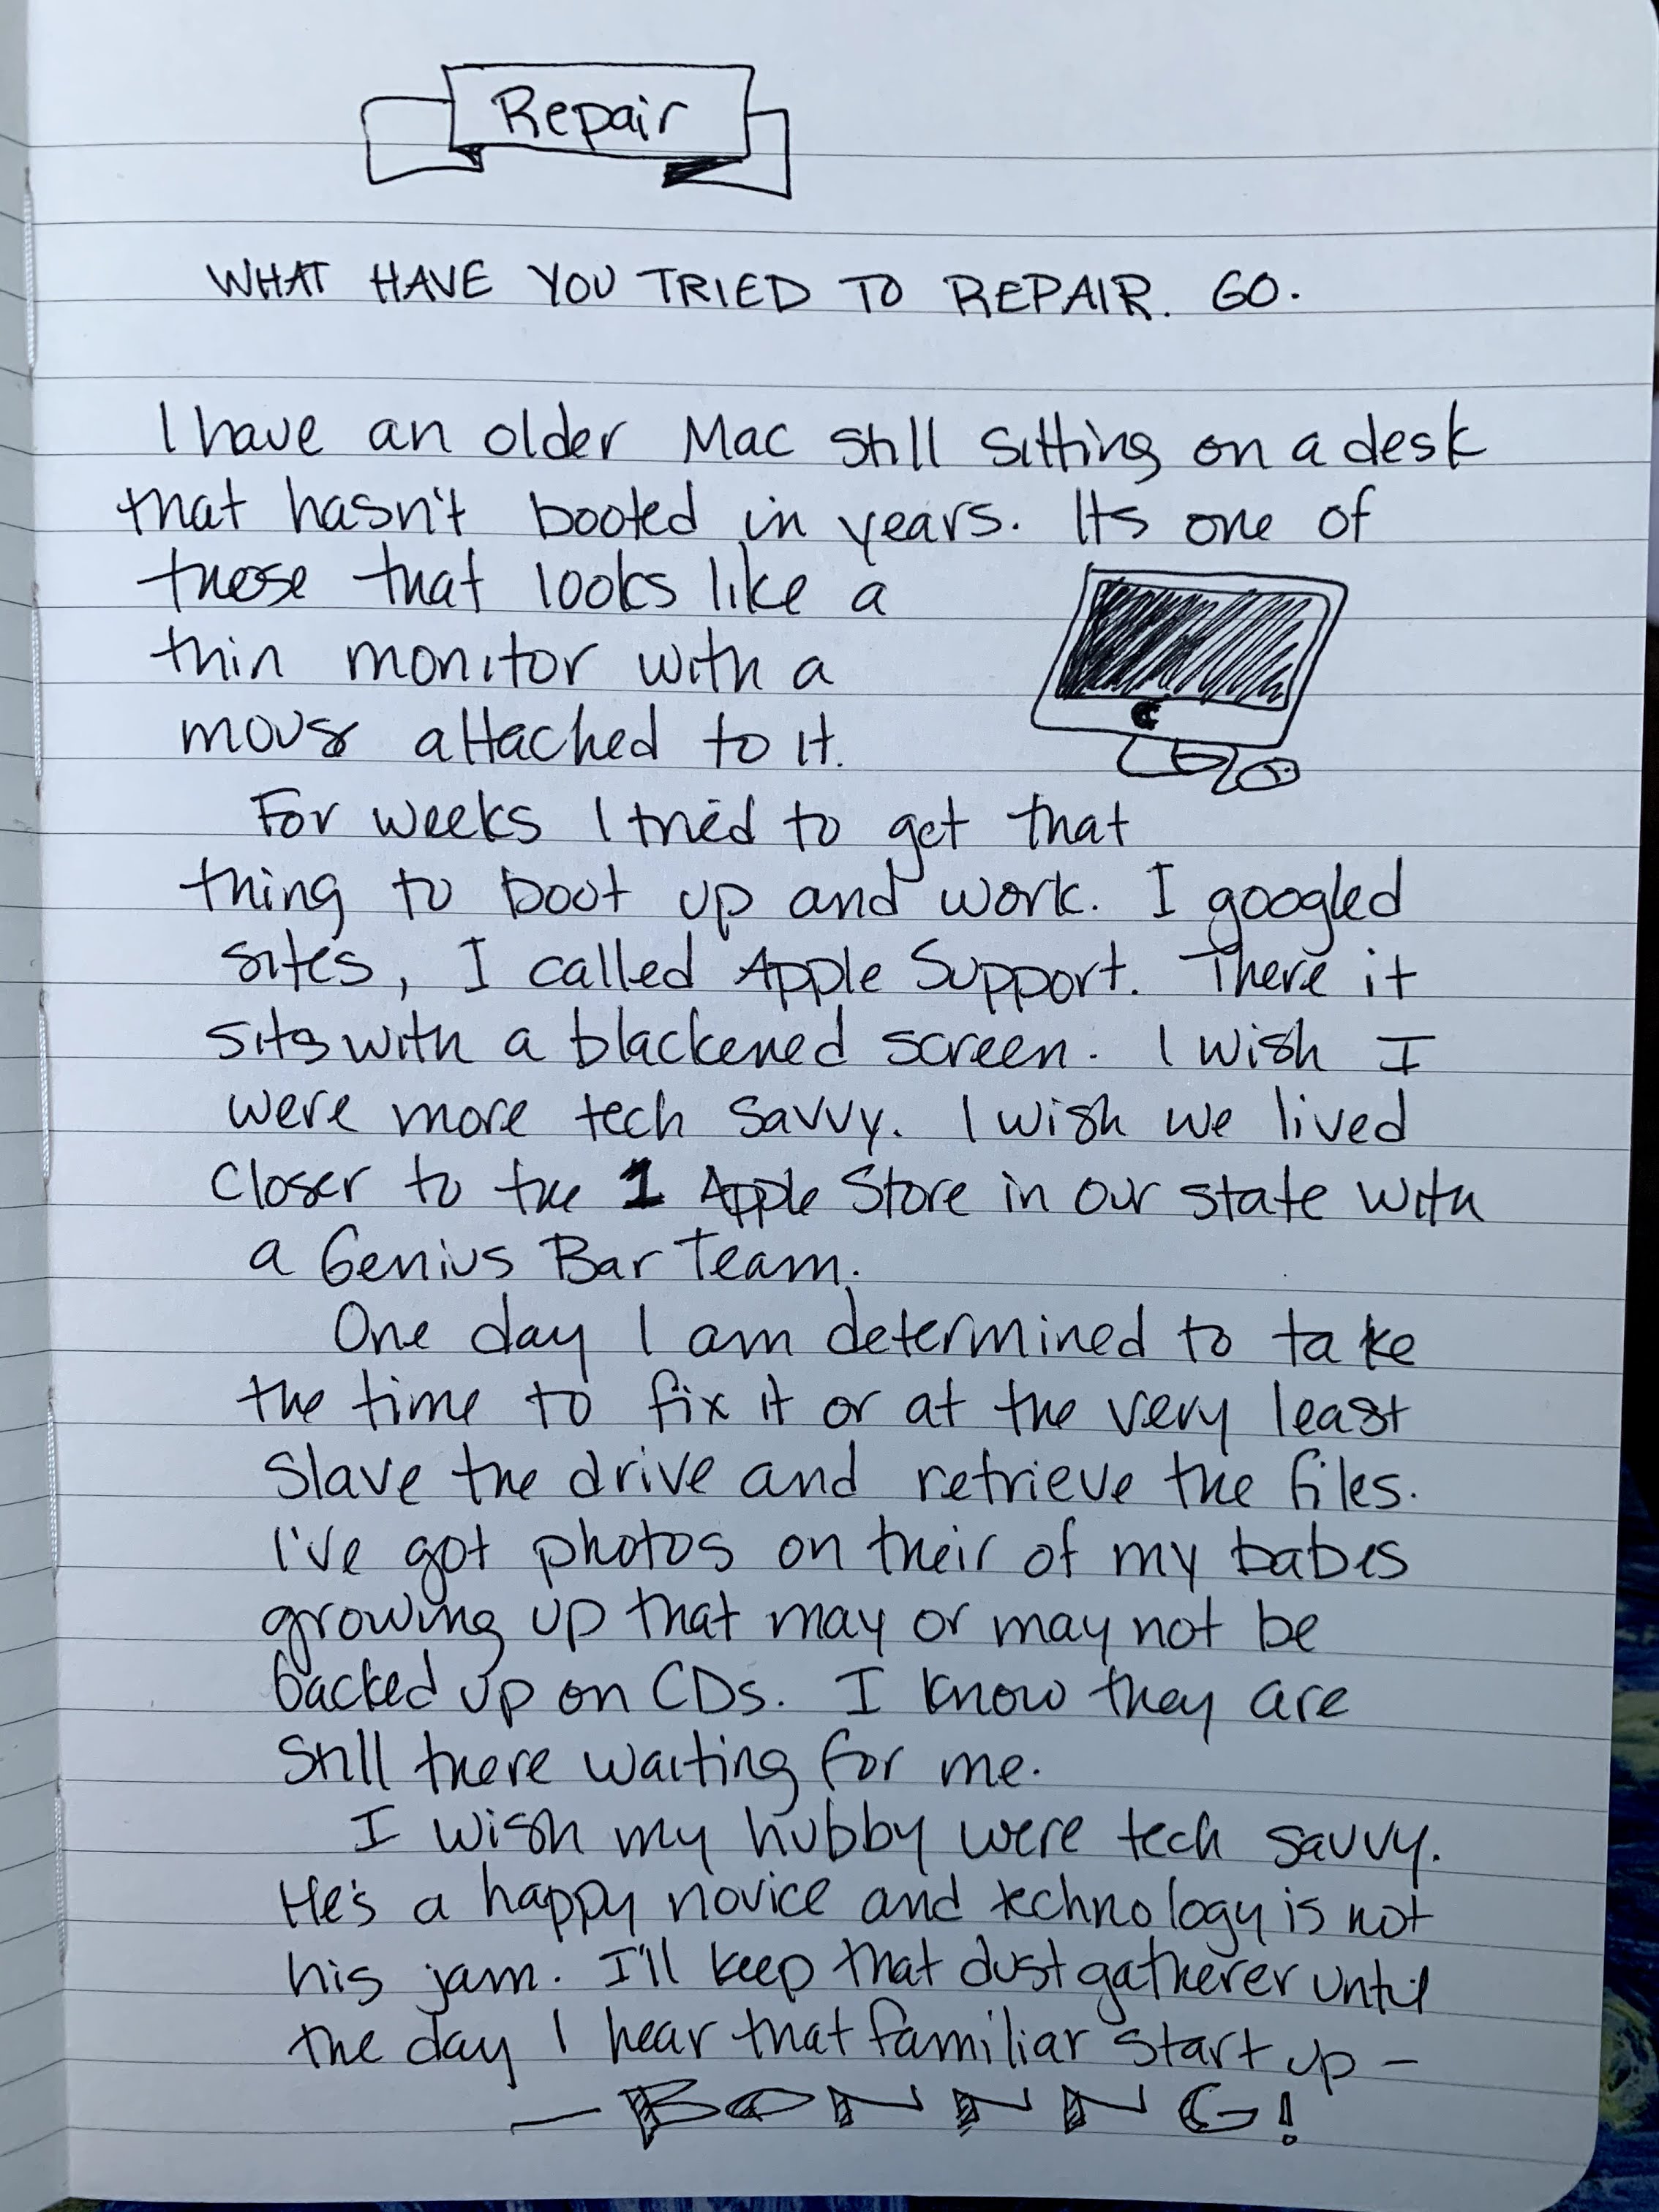 Repair
WHAT HAVE YOU TRIED TO REPAIR. GO.
I have an older Mac still sitting on a desk
that hasn't booted in years. Its one of
those that looks like a
thin monitor with a
mouse attached to it.
For weeks I tried to get that
thing to boot up and work. I googled
sites, I called Apple Support. There it
sits with a blackened screen. I wish I
were more tech savvy. I wish we lived
closer to the 1 Apple Store in our state with
a Genius Bar Team.
One day I am determined to take
the time to fix it or at the very least
slave the drive and retrieve the files.
I've got photos on their of my babes
growing up that may or may not be
backed up on CDs. I know they are
still there waiting for me.
I wish my hubby were tech savvy.
He's a happy novice and technology is not
his jam. I'll keep that dust gatherer until
the day I hear that familiar start up -
- BONNNG!